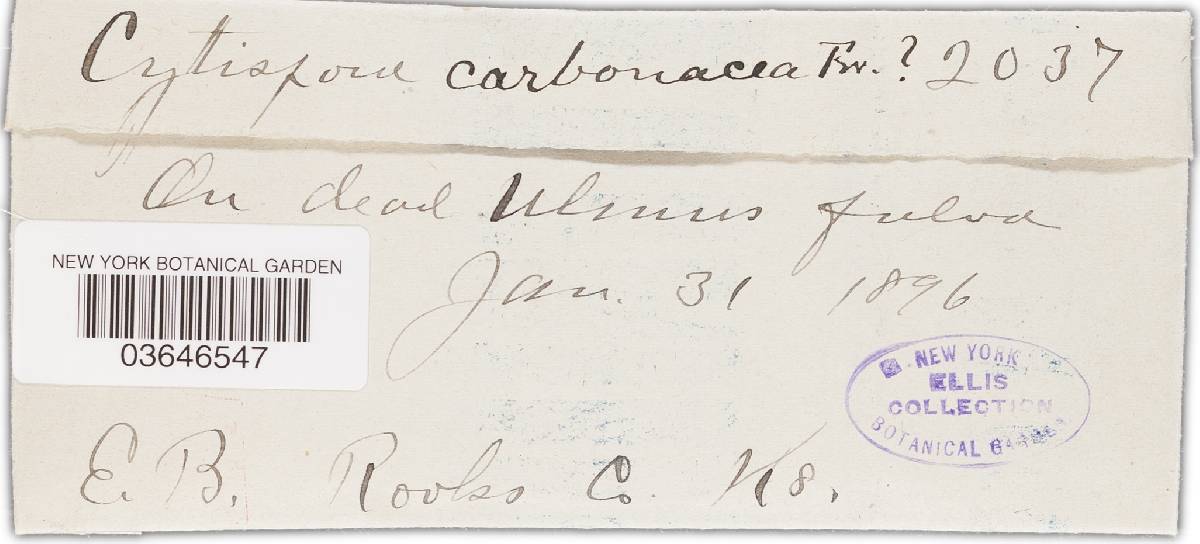 Cytispora carbonacea Fr.? 2037
On dead Ulmus fulva
Jan. 31 1896
NEW YORK BOTANICAL GARDEN
03646547
NEW YORK
ELLIS
COLLECTION
BOTANICAL GARDEN
E. B. Rooks Co. Ks.